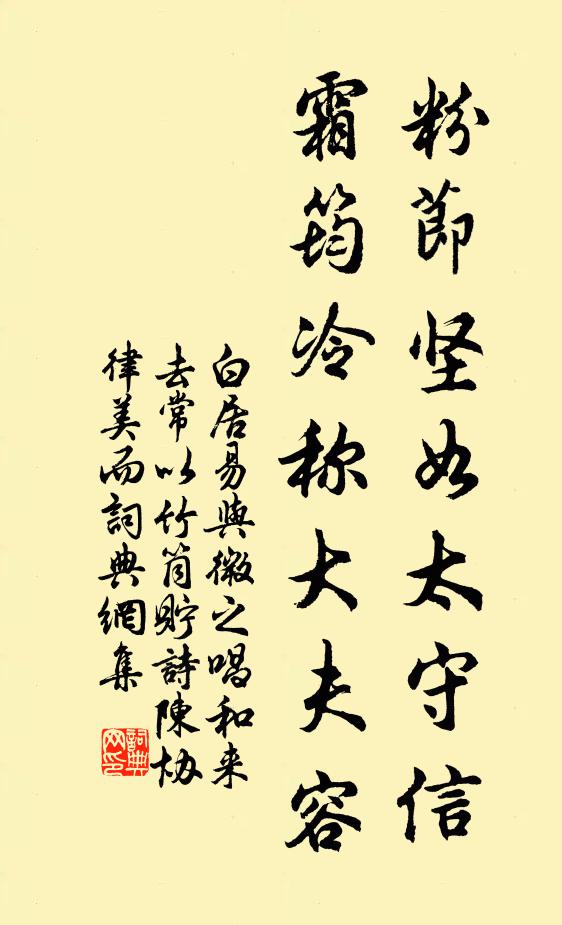 粉節坚如太守信
霜筠冷称大夫容
白居易與微之唱和来
去常以竹筒貯詩陳协
律美而詞典網集
詞典
网印